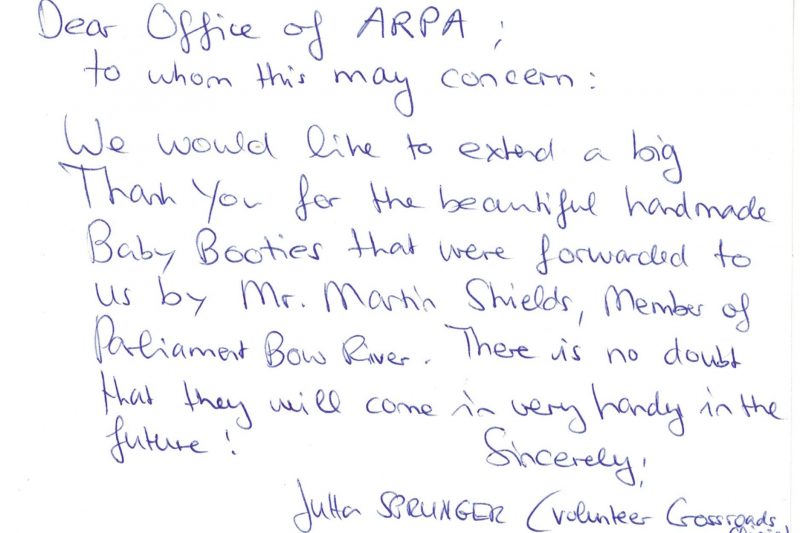 Dear Office of ARPA ;
to whom this may concern :
We would like to extend a big
Thank You for the beautiful handmade
Baby Booties that were forwarded to
us by Mr. Martin Shields, Member of
Parliament Bow River. There is no doubt
that they will come in very handy in the
future !
Sincerely,
Jutta SPRUNGER (Volunteer Crossroads,